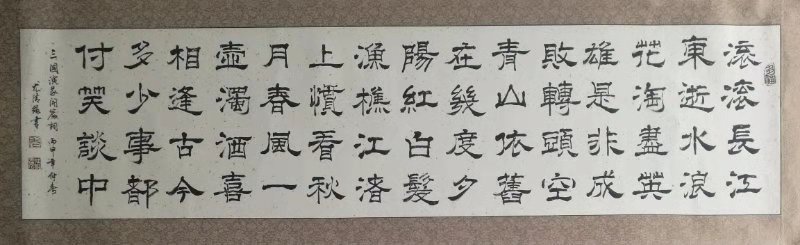 滚滚長江
東逝水浪
花淘盡英
雄是非成
敗轉頭空
青山依舊
在幾度夕
陽紅白髮
漁樵江渚
上慣看秋
月春風一
壺濁酒喜
相逢古今
多少事都
付笑談中
三國演義開篇詞 丙申年仲春
書